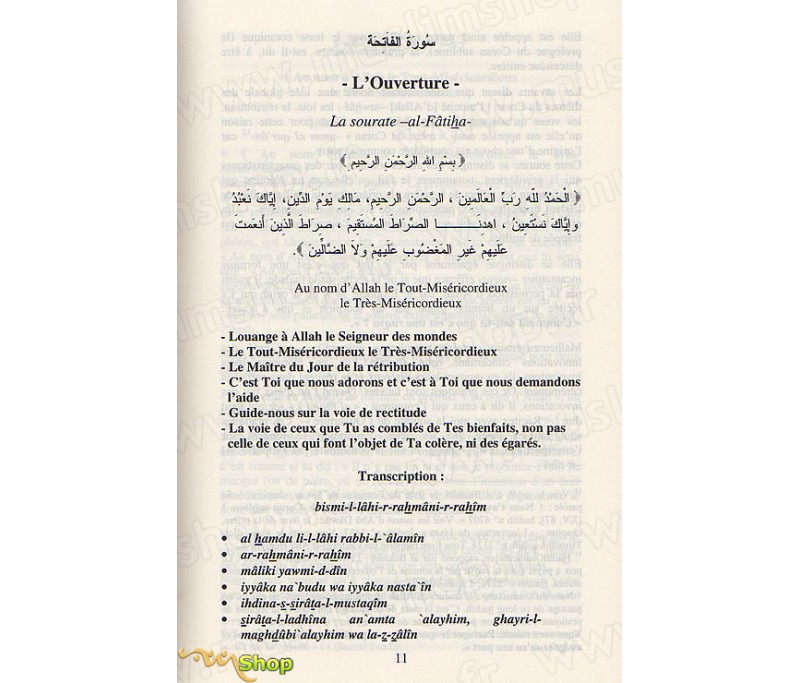 سُورَةُ الفَاتِحَة
- L'Ouverture -
La sourate –al-Fâtiha-
﴿ بِسْمِ اللهِ الرَّحْمَنِ الرَّحِيمِ ﴾
﴿ الْحَمْدُ لله رَبِّ الْعَالَمِينَ ، الرَّحْمَنِ الرَّحِيمِ، مَالِكِ يَوْمِ الدِّينِ، إِيَّاكَ نَعْبُدُ
وإِيَّاكَ نَسْتَعِينُ ، اهدِنَــــــا الصِّرَاطَ المُسْتَقِيمَ ، صِرَاطَ الَّذِينَ أَنعَمتَ
عَلَيهِمْ غَيرِ المَغْضُوبِ عَلَيهِمْ وَلاَ الضَّالِّينَ ﴾.
Au nom d'Allah le Tout-Miséricordieux
le Très-Miséricordieux
- Louange à Allah le Seigneur des mondes
- Le Tout-Miséricordieux le Très-Miséricordieux
- Le Maître du Jour de la rétribution
- C'est Toi que nous adorons et c'est à Toi que nous demandons
l'aide
- Guide-nous sur la voie de rectitude
- La voie de ceux que Tu as comblés de Tes bienfaits, non pas
celle de ceux qui font l'objet de Ta colère, ni des égarés.
Transcription :
bismi-l-lâhi-r-rahmâni-r-rahîm
• al hamdu li-l-lâhi rabbi-l-`âlamîn
• ar-rahmâni-r-rahîm
• mâliki yawmi-d-dîn
• iyyâka na`budu wa iyyâka nasta`în
• ihdina-s-sirâta-l-mustaqîm
• sirâta-l-ladhîna an`amta `alayhim, ghayri-l-
maghdûbi`alayhim wa la-z-zâlîn
11
Shop